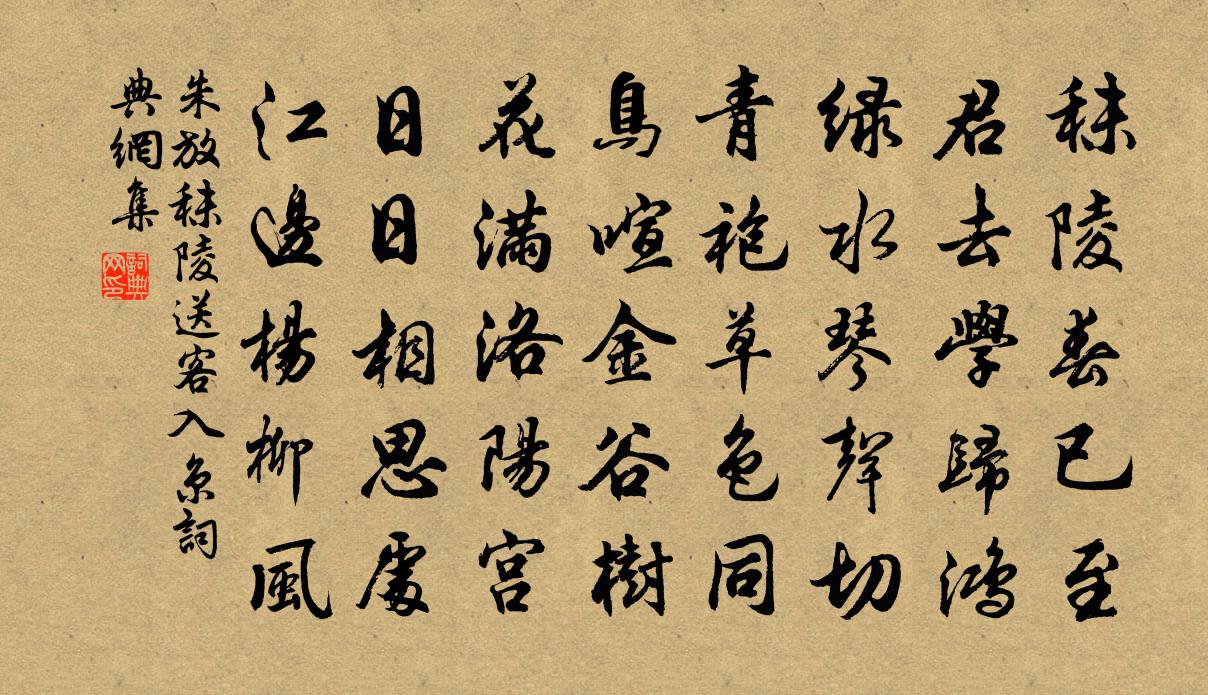 秣陵春已至
君去學歸鴻
绿水琴聲切
青袍草色同
鳥喧金谷樹
花滿洛陽宮
日日相思處
江邊楊柳風
朱放秣陵送客入京詞
典網集
詞典
网印